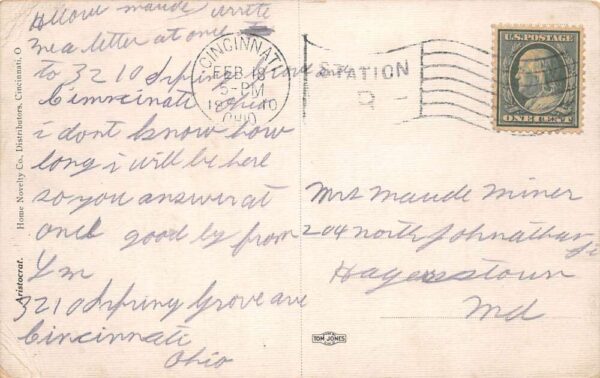 Hellow maude write
me a letter at one to
to 3210 Spring Grove ave
Cinncinati Ohio
i dont know how
long i will be here
so you answer at
once good by from
3210 Spring Grove ave
Cincinnati
Ohio
Home Novelty Co., Distributors, Cincinnati, O
Aristocrat.
CINCINNATI
FEB 18
5-PM
OHIO
STATION
U.S. POSTAGE
ONE CENT
Mrs Maude Miner
204 north Johnathan
St
Hagerstown
Md
TOM JONES